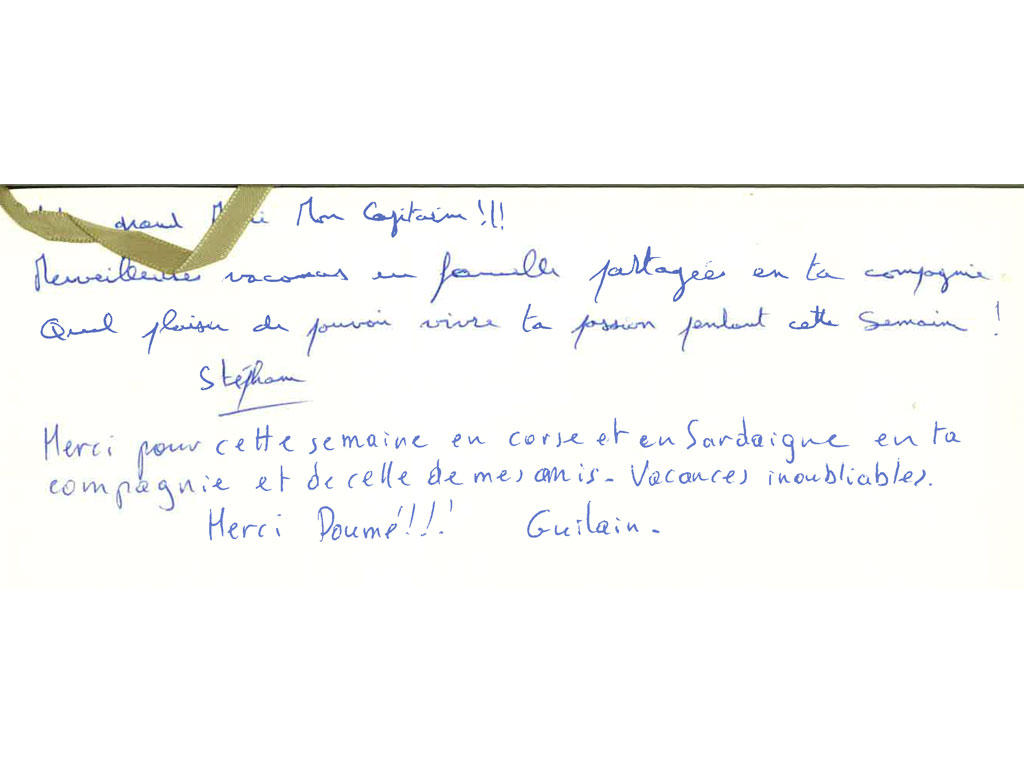 grand Merci Mon Capitaine !!!
Merveilleuses vacances en famille partagées en ta compagnie.
Quel plaisir de pouvoir vivre ta passion pendant cette semaine !
Stéphane
Merci pour cette semaine en corse et en Sardaigne en ta
compagnie et de celle de mes amis. Vacances inoubliables.
Merci Doumé !!! Guilain.